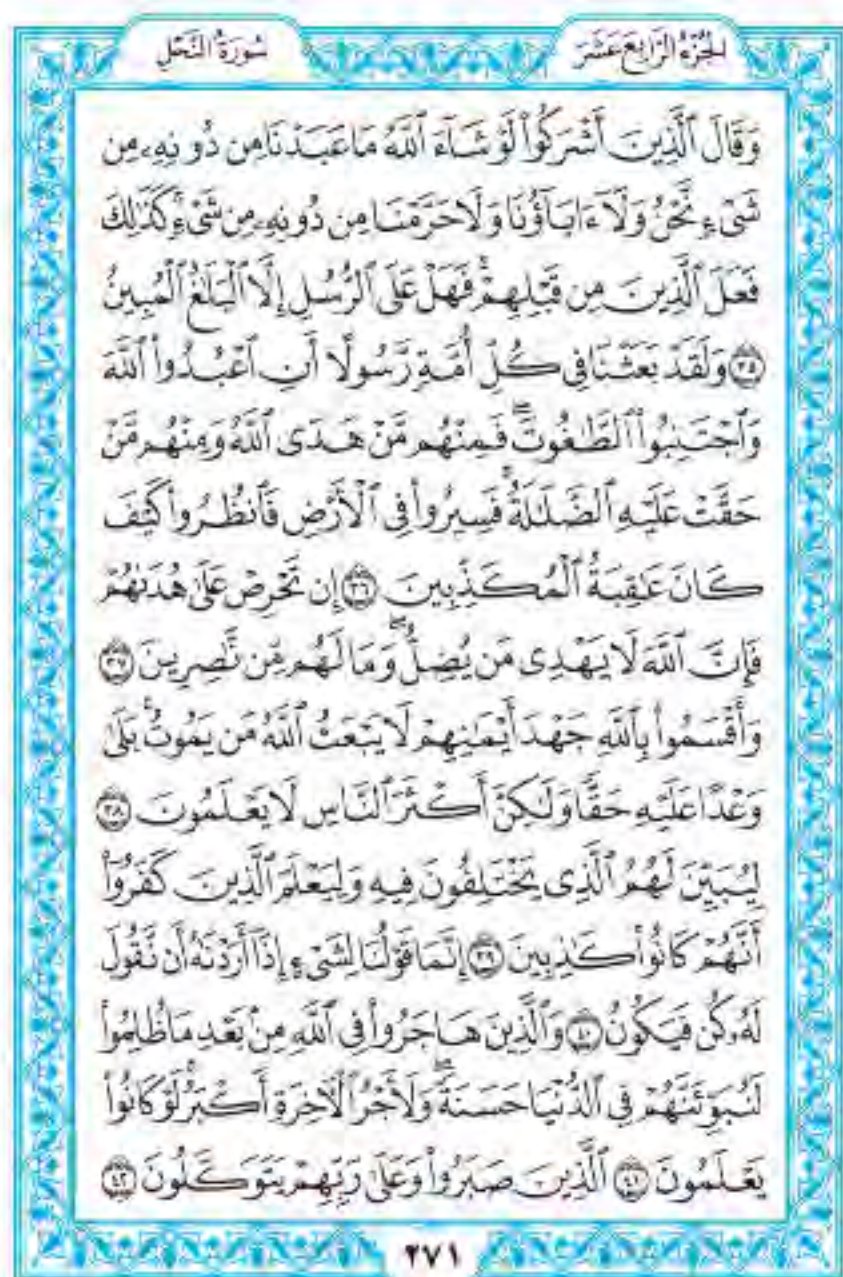 الجزء الرابع عشر
سورة النحل
وَقَالَ ٱلَّذِينَ أَشۡرَكُواْ لَوۡ شَآءَ ٱللَّهُ مَا عَبَدۡنَا مِن دُونِهِۦ مِن
شَىۡءٖ نَّحۡنُ وَلَآ ءَابَآؤُنَا وَلَا حَرَّمۡنَا مِن دُونِهِۦ مِن شَىۡءٖۚ كَذَٰلِكَ
فَعَلَ ٱلَّذِينَ مِن قَبۡلِهِمۡۚ فَهَلۡ عَلَى ٱلرُّسُلِ إِلَّا ٱلۡبَلَٰغُ ٱلۡمُبِينُ
٣٥ وَلَقَدۡ بَعَثۡنَا فِى كُلِّ أُمَّةٖ رَّسُولًا أَنِ ٱعۡبُدُواْ ٱللَّهَ
وَٱجۡتَنِبُواْ ٱلطَّٰغُوتَۖ فَمِنۡهُم مَّنۡ هَدَى ٱللَّهُ وَمِنۡهُم مَّنۡ
حَقَّتۡ عَلَيۡهِ ٱلضَّلَٰلَةُۚ فَسِيرُواْ فِى ٱلۡأَرۡضِ فَٱنظُرُواْ كَيۡفَ
كَانَ عَٰقِبَةُ ٱلۡمُكَذِّبِينَ ٣٦ إِن تَحۡرِصۡ عَلَىٰ هُدَىٰهُمۡ
فَإِنَّ ٱللَّهَ لَا يَهۡدِى مَن يُضِلُّۖ وَمَا لَهُم مِّن نَّٰصِرِينَ ٣٧
وَأَقۡسَمُواْ بِٱللَّهِ جَهۡدَ أَيۡمَٰنِهِمۡ لَا يَبۡعَثُ ٱللَّهُ مَن يَمُوتُۚ بَلَىٰ
وَعۡدًا عَلَيۡهِ حَقّٗا وَلَٰكِنَّ أَكۡثَرَ ٱلنَّاسِ لَا يَعۡلَمُونَ ٣٨
لِيُبَيِّنَ لَهُمُ ٱلَّذِى يَخۡتَلِفُونَ فِيهِ وَلِيَعۡلَمَ ٱلَّذِينَ كَفَرُوٓاْ
أَنَّهُمۡ كَانُواْ كَٰذِبِينَ ٣٩ إِنَّمَا قَوۡلُنَا لِشَىۡءٍ إِذَآ أَرَدۡنَٰهُ أَن نَّقُولَ
لَهُۥ كُن فَيَكُونُ ٤٠ وَٱلَّذِينَ هَاجَرُواْ فِى ٱللَّهِ مِنۢ بَعۡدِ مَا ظُلِمُواْ
لَنُبَوِّئَنَّهُمۡ فِى ٱلدُّنۡيَا حَسَنَةٗۖ وَلَأَجۡرُ ٱلۡأٓخِرَةِ أَكۡبَرُۚ لَوۡ كَانُواْ
يَعۡلَمُونَ ٤١ ٱلَّذِينَ صَبَرُواْ وَعَلَىٰ رَبِّهِمۡ يَتَوَكَّلُونَ ٤٢
٢٧١